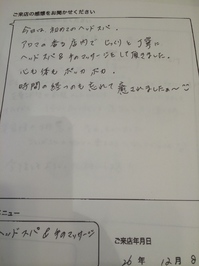 ご来店の感想をお聞かせください
今日は初めてのヘッドスパ。
アロマの香る店内で じっくりと丁寧に
ヘッドスパ&手のマッサージをして頂きました。
心も体もポッカポカ。
時間の経つのも忘れて癒されましたぁ〜
メニュー
ヘッドスパ&手のマッサージ
ご来店年月日
26年 12月 8